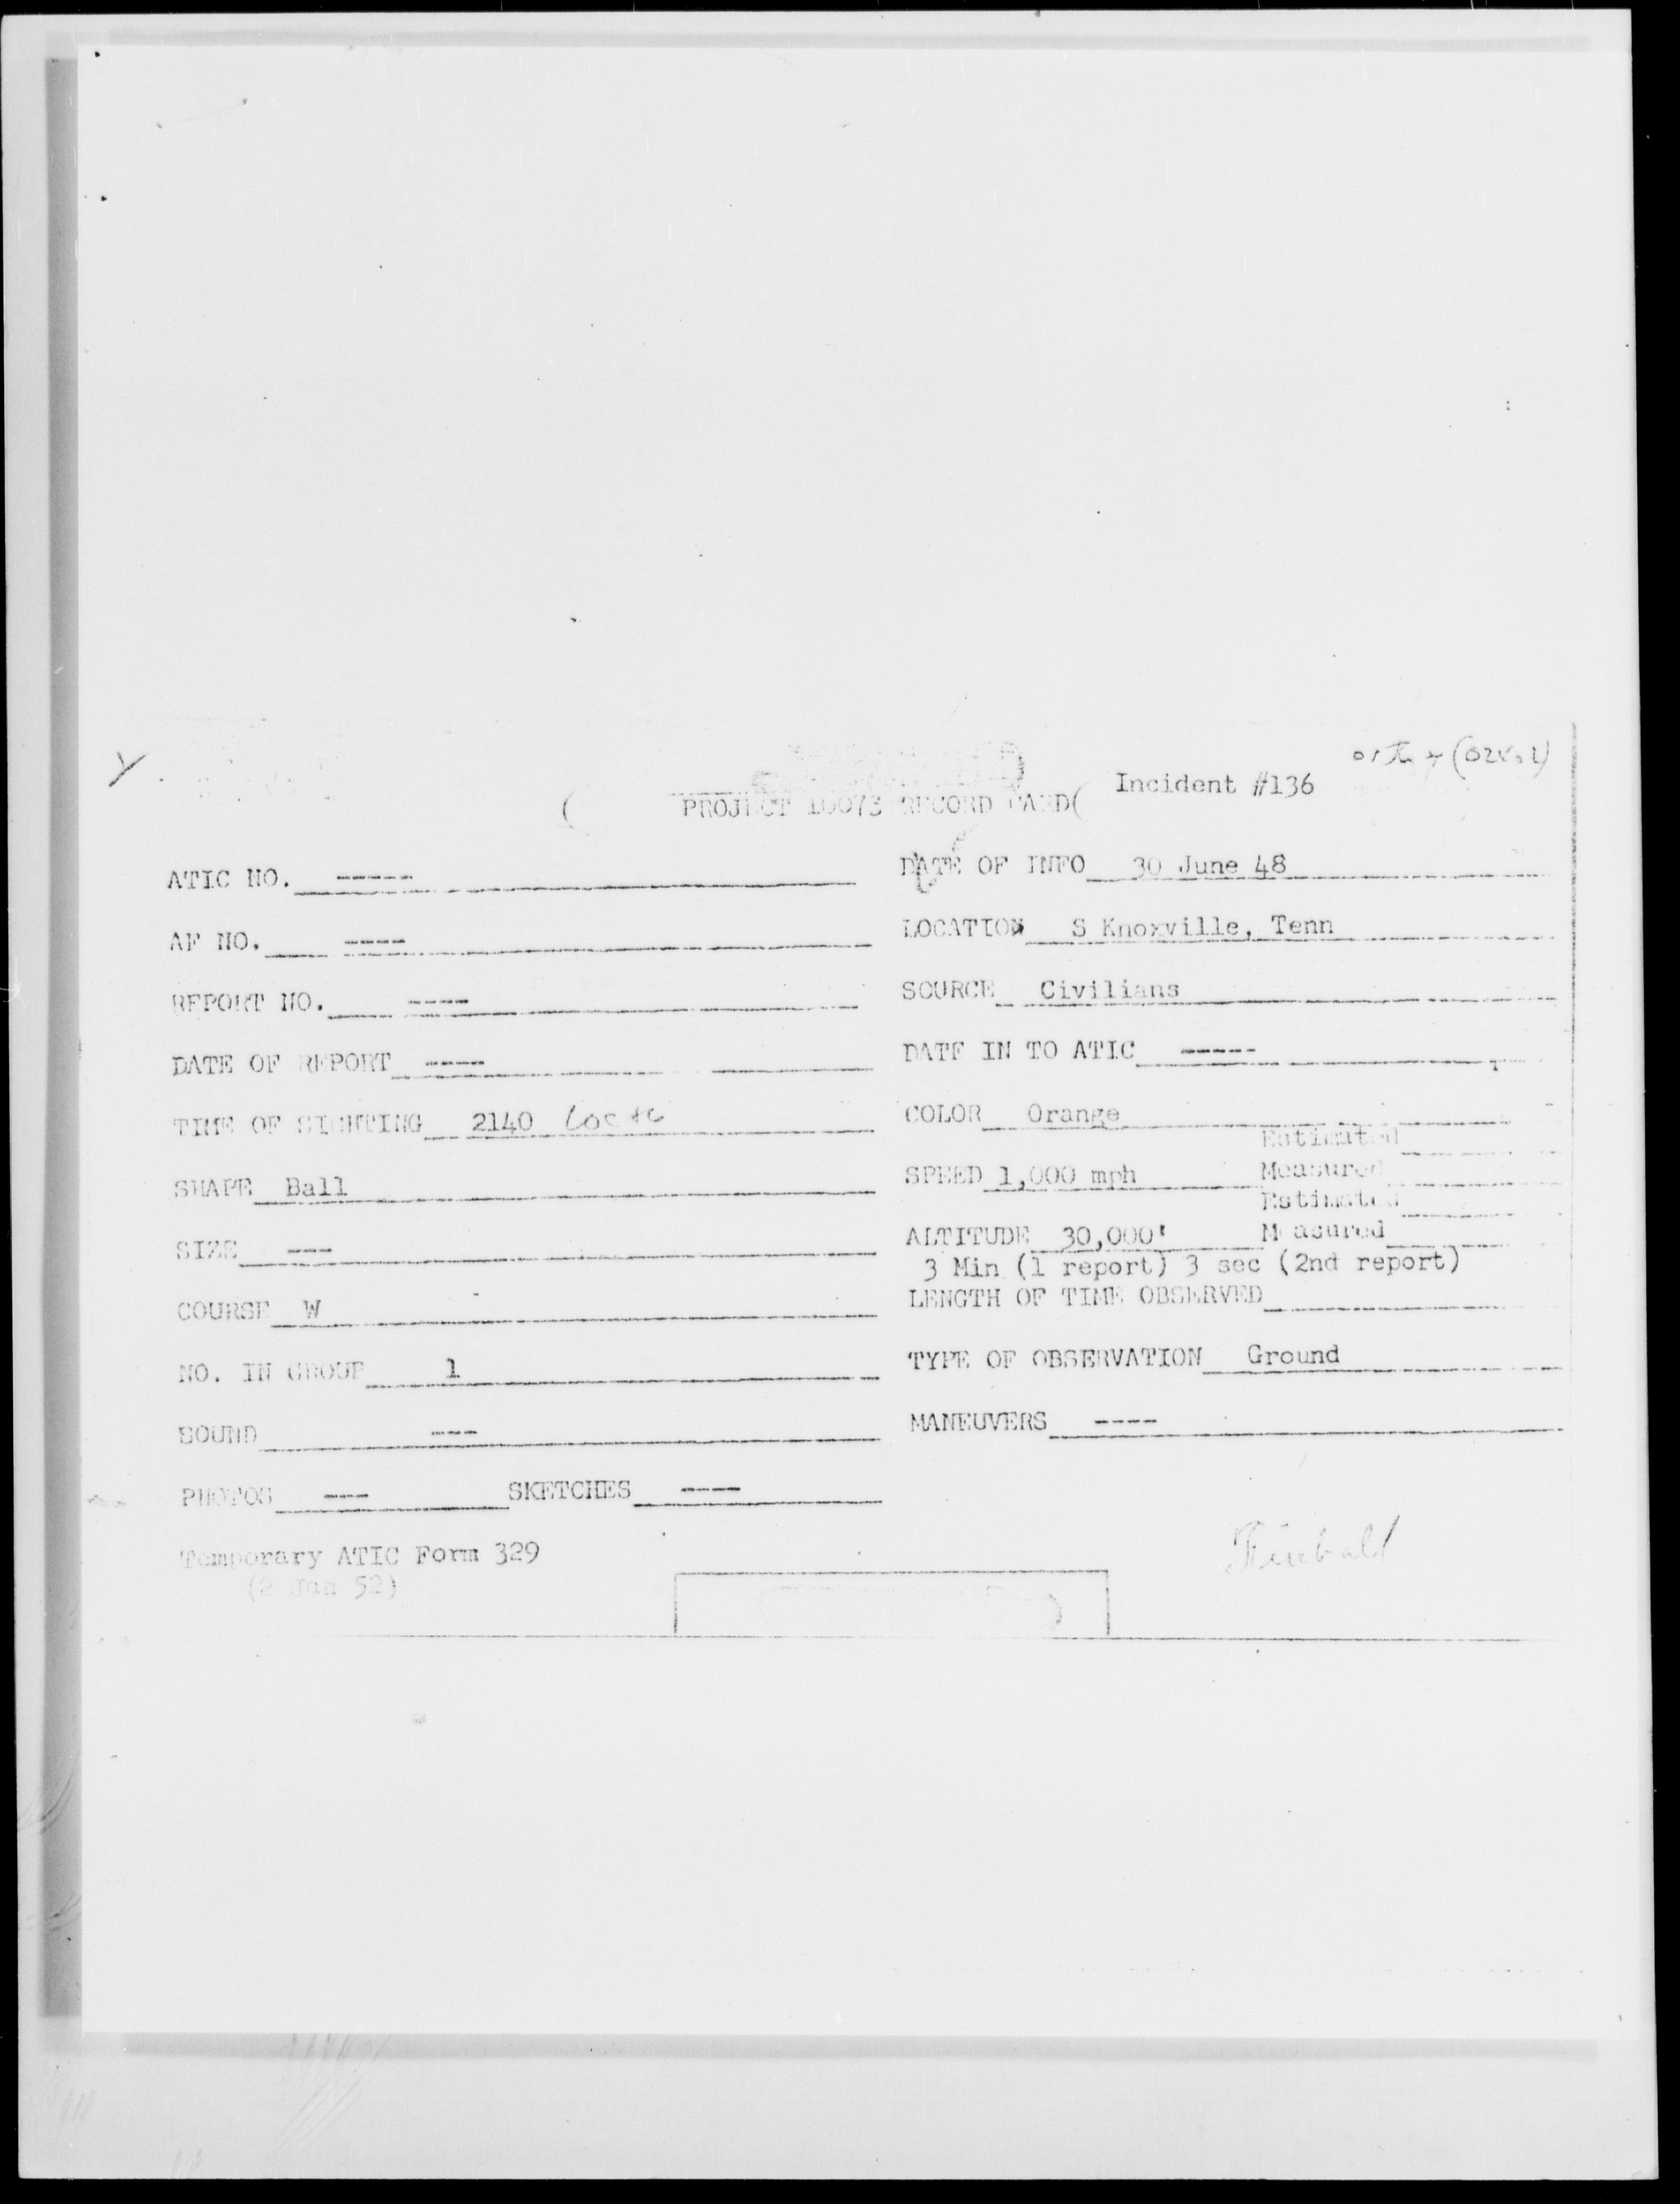 Incident #136
PROJECT 10073 RECORD CARD
ATIC NO. -----
DATE OF INFO 30 June 48
AF NO. ----
LOCATION S Knoxville, Tenn
REPORT NO. ----
SOURCE Civilians
DATE OF REPORT ----
DATE IN TO ATIC -----
TIME OF SIGHTING 2140 Local
COLOR Orange
Estimated
SHAPE Ball
SPEED 1,000 mph Measured
Estimated
SIZE ---
ALTITUDE 30,000' Measured
3 Min (1 report) 3 sec (2nd report)
COURSE W
LENGTH OF TIME OBSERVED
NO. IN GROUP 1
TYPE OF OBSERVATION Ground
SOUND ---
MANEUVERS ----
PHOTOS --- SKETCHES ----
Temporary ATIC Form 329
(2 Jan 52)